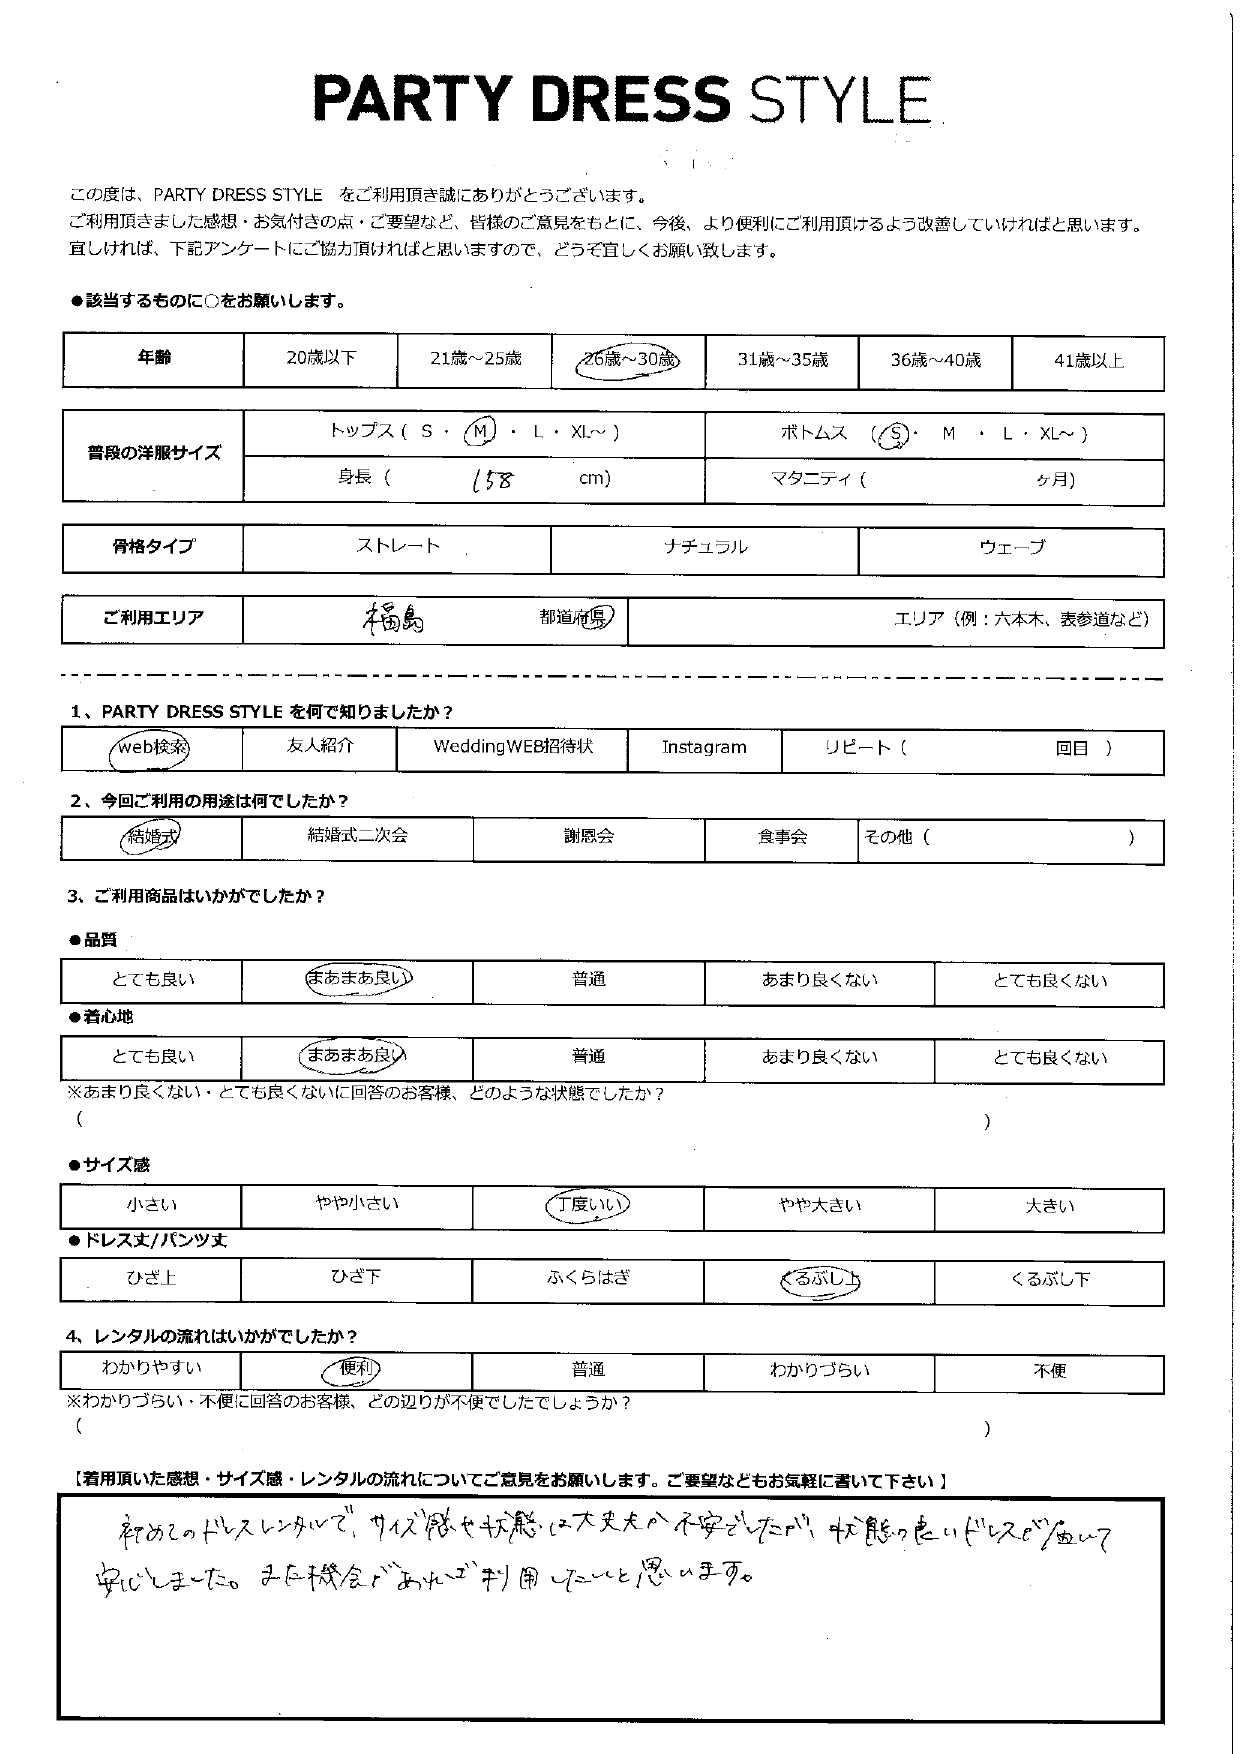 PARTY DRESS STYLE
この度は、PARTY DRESS STYLE をご利用頂き誠にありがとうございます。
ご利用頂きました感想・お気付きの点・ご要望など、皆様のご意見をもとに、今後、より便利にご利用頂けるよう改善していければと思います。
宜しければ、下記アンケートにご協力頂ければと思いますので、どうぞ宜しくお願い致します。
●該当するものに○をお願いします。
年齢 20歳以下 21歳～25歳 26歳～30歳 31歳～35歳 36歳～40歳 41歳以上
普段の洋服サイズ トップス ( S ・ M ・ L ・ XL～ ) ボトムス ( S ・ M ・ L ・ XL～ )
身長 ( 158 cm) マタニティ ( ヶ月)
骨格タイプ ストレート ナチュラル ウェーブ
ご利用エリア 福島 都道府県 エリア（例：六本木、表参道など）
1、PARTY DRESS STYLE を何で知りましたか？
web検索 友人紹介 WeddingWEB招待状 Instagram リピート ( 回目 )
2、今回ご利用の用途は何でしたか？
結婚式 結婚式二次会 謝恩会 食事会 その他 ( )
3、ご利用商品はいかがでしたか？
●品質
とても良い まあまあ良い 普通 あまり良くない とても良くない
●着心地
とても良い まあまあ良い 普通 あまり良くない とても良くない
※あまり良くない・とても良くないに回答のお客様、どのような状態でしたか？
( )
●サイズ感
小さい やや小さい 丁度いい やや大きい 大きい
●ドレス丈/パンツ丈
ひざ上 ひざ下 ふくらはぎ くるぶし上 くるぶし下
4、レンタルの流れはいかがでしたか？
わかりやすい 便利 普通 わかりづらい 不便
※わかりづらい・不便に回答のお客様、どの辺りが不便でしたでしょうか？
( )
【着用頂いた感想・サイズ感・レンタルの流れについてご意見をお願いします。ご要望などもお気軽に書いて下さい】
初めてのドレスレンタルで、サイズ感や状態は大丈夫か不安でしたが、状態の良いドレスが届いて
安心しました。また機会があれば利用したいと思います。